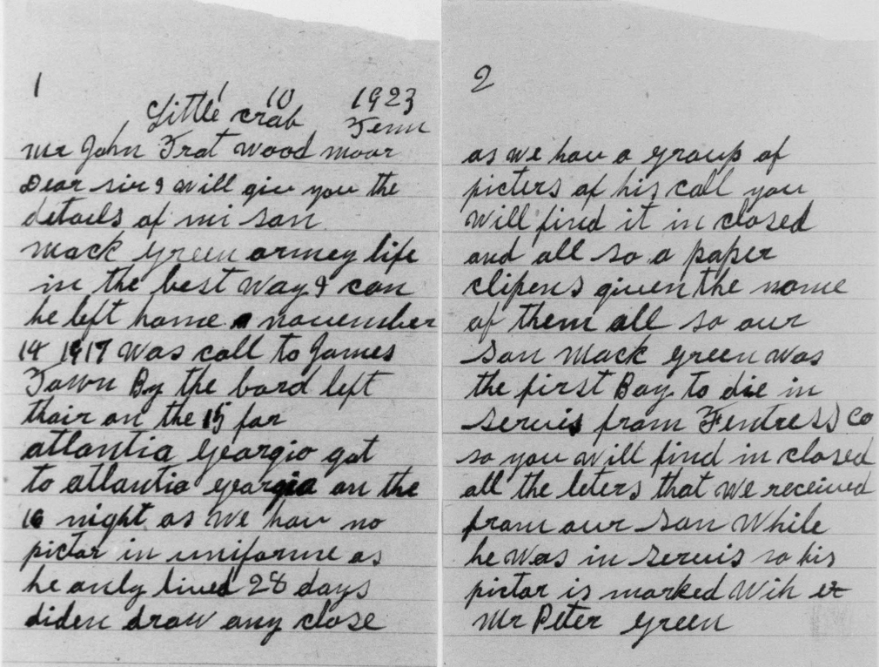 1
1 10 1923
Little crab Tenn
Mr John Trot wood moor
Dear sir I will giv you the
details of mi son
Mack green armey life
in the best way I can
he left home november
14 1917 was call to James
Town By the bord left
thair on the 15 for
atlantia georgio got
to atlantia georgia on the
16 night as we hav no
pictor in uniforme as
he only lived 28 days
diden draw any close
2
as we hav a group of
picters of his call you
will find it in closed
and all so a paper
clipens given the nome
of them all so our
son Mack green was
the first Boy to die in
servis from Fentress Co
so you will find in closed
all the leters that we received
from our son While
he was in servis so his
pictor is marked With
Mr Peter green